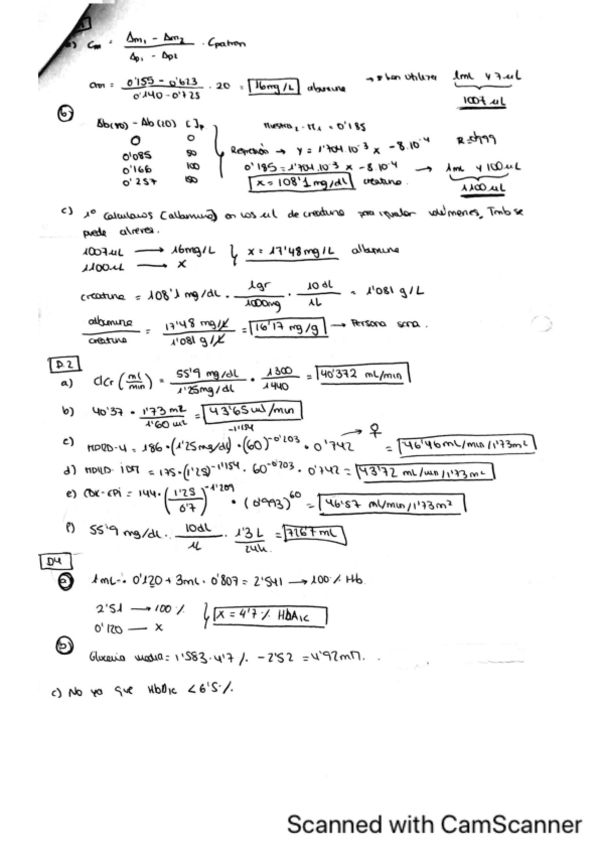 a) Cm = (Δm1 - Δm2) / (Δp1 - Δp2) · Cpatron
Cm = (0'155 - 0'623) / (0'140 - 0'725) · 20 = 16mg/L albumina → han utilizar 1mL y 7uL
1007uL
b)
Ab(70) - Ab(10) [ ]p muestra2 - m1 = 0'185
0 0
0'085 50 Regresión → y = 1'704.10⁻³ x - 8.10⁻⁴ R=0'999
0'166 100 0'185 = 1'704.10⁻³ x - 8·10⁻⁴ → 1mL y 100uL
0'257 150 x = 108'1 mg/dl creatina. 1100uL
c) 1º Calculamos [albumina] en los uL de creatina para igualar volúmenes, Tmb se
puede alreves.
1007uL → 16mg/L x = 17'48mg/L albumina
1100uL → x
creatina = 108'1 mg/dL · 1gr/1000mg · 10dl/1L = 1'081 g/L
albumina/creatina = 17'48 mg/L / 1'081 g/L = 16'17 mg/g → Persona sana.
D.2
a) ClCr (ml/min) = 55'9 mg/dl / 1'25mg/dL · 1300/1440 = 40'372 mL/min
b) 40'37 · 1'73m2/1'60m2 = 43'65ml/min
c) MDRD-4 = 186·(1'25mg/dl)^-1'154 · (60)^-0'203 · 0'742 → ♀ = 46'46mL/min/1'73m²
d) MDRD-IDMS = 175·(1'25)^-1'154 · 60^-0'203 · 0'742 = 43'72 mL/min/1'73m²
e) CDK-EPI = 144·(1'25/0'7)^-1'209 · (0'993)^60 = 46'57 ml/min/1'73m²
f) 55'9 mg/dl · 10dl/1L · 1'3L/24h = 726'7mL
D4
a) 1mL · 0'120 + 3mL · 0'807 = 2'541 → 100% Hb
2'51 → 100% x = 4'7% HbA1c
0'120 — x
b)
Glucemia media = 1'583·4'7% - 2'52 = 4'92mM.
c) No ya que HbA1c < 6'5%
Scanned with CamScanner